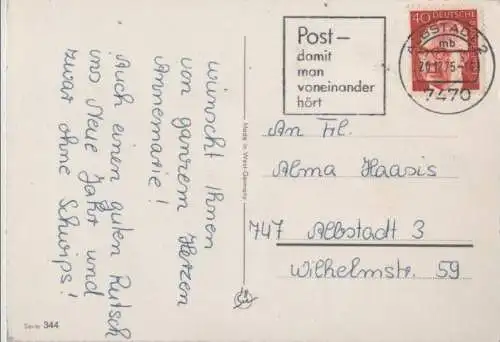 wünscht Ihnen
von ganzem Herzen
Annemarie!
Auch einen guten Rutsch
ins Neue Jahr und
zwar ohne Schwips!
Serie 344
Made in West-Germany
Post –
damit
man
voneinander
hört
40 DEUTSCHE
ALBSTADT 2
mb
20.12.75
7470
An Frl.
Alma Haasis
747 Albstadt 3
Wilhelmstr. 59